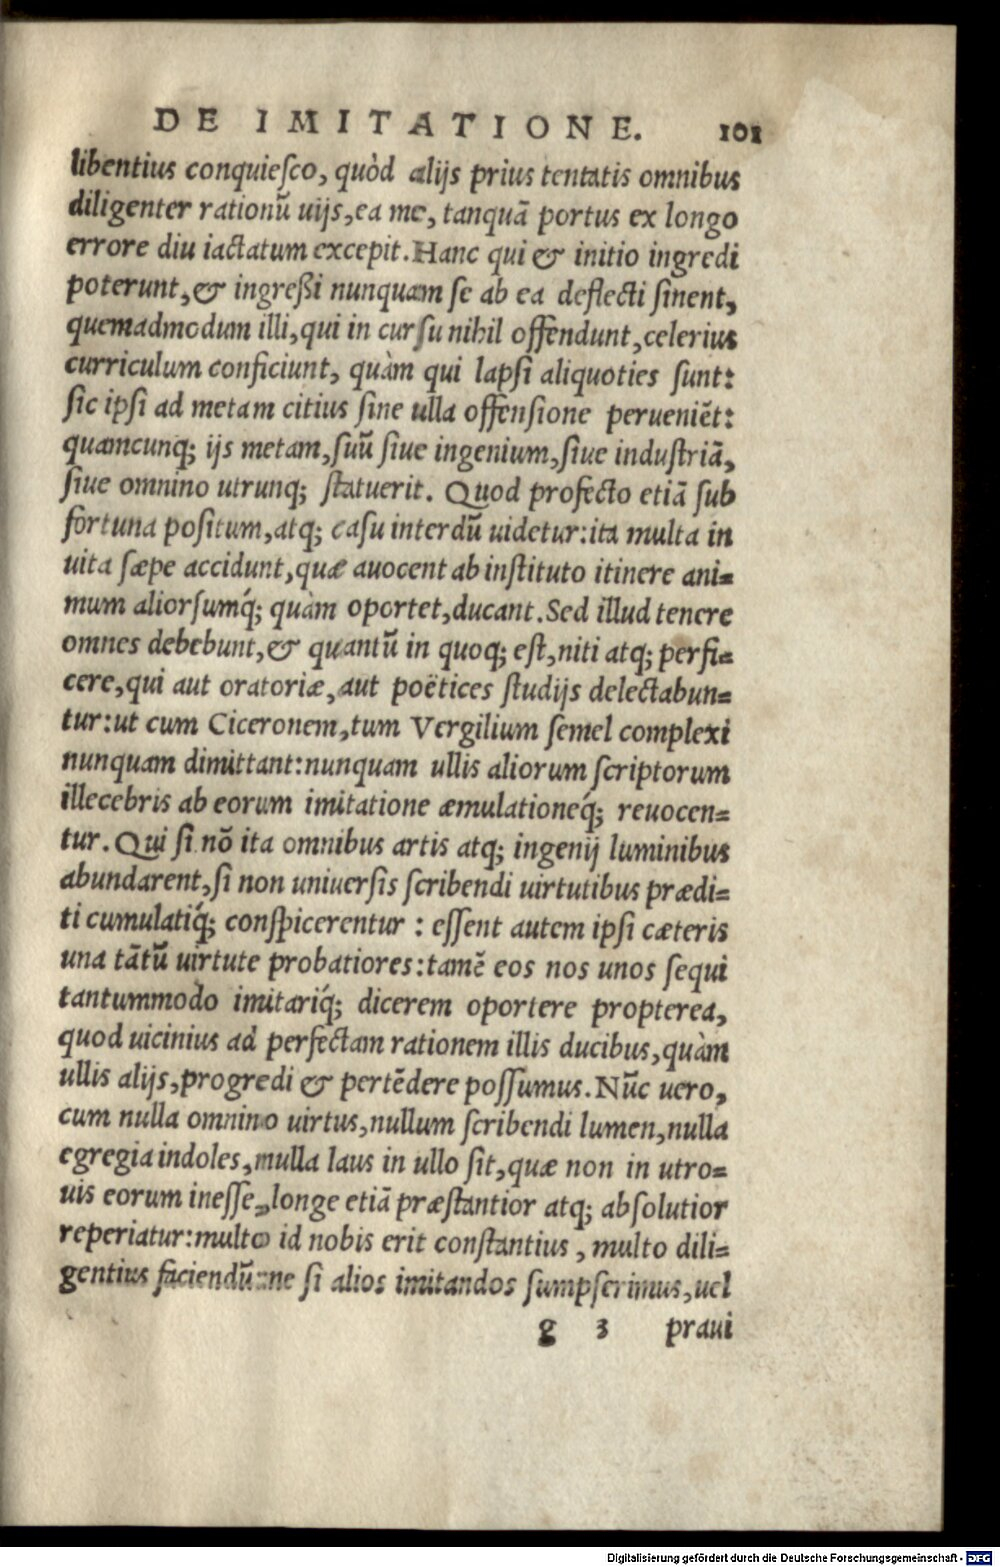 DE IMITATIONE. 101
libentius conquieſco, quòd alijs prius tentatis omnibus
diligenter rationũ uijs, ea me, tanquã portus ex longo
errore diu iactatum excepit. Hanc qui & initio ingredi
poterunt, & ingreßi nunquam ſe ab ea deflecti ſinent,
quemadmodum illi, qui in curſu nihil offendunt, celerius
curriculum conficiunt, quàm qui lapſi aliquoties ſunt:
ſic ipſi ad metam citius ſine ulla offenſione perueniẽt:
quamcunq; ijs metam, ſuũ ſiue ingenium, ſiue induſtriã,
ſiue omnino utrunq; ſtatuerit. Quod profecto etiã ſub
fortuna poſitum, atq; caſu interdũ uidetur: ita multa in
uita ſæpe accidunt, quæ auocent ab inſtituto itinere ani=
mum aliorſumq́; quàm oportet, ducant. Sed illud tenere
omnes debebunt, & quantũ in quoq; eſt, niti atq; perfi=
cere, qui aut oratoriæ, aut poëtices ſtudijs delectabun=
tur: ut cum Ciceronem, tum Vergilium ſemel complexi
nunquam dimittant: nunquam ullis aliorum ſcriptorum
illecebris ab eorum imitatione æmulationeq́; reuocen=
tur. Qui ſi nõ ita omnibus artis atq; ingenij luminibus
abundarent, ſi non uniuerſis ſcribendi uirtutibus prædi=
ti cumulatiq́; conſpicerentur : eſſent autem ipſi cæteris
una tãtũ uirtute probatiores: tamẽ eos nos unos ſequi
tantummodo imitariq́; dicerem oportere propterea,
quod uicinius ad perfectam rationem illis ducibus, quàm
ullis alijs, progredi & pertẽdere poſſumus. Nũc uero,
cum nulla omnino uirtus, nullum ſcribendi lumen, nulla
egregia indoles, nulla laus in ullo ſit, quæ non in utro=
uis eorum ineſſe, longe etiã præſtantior atq; abſolutior
reperiatur: multo id nobis erit conſtantius, multo dili=
gentius faciendũ: ne ſi alios imitandos ſumpſerimus, uel
g 3 praui
Digitalisierung gefördert durch die Deutsche Forschungsgemeinschaft - DFG